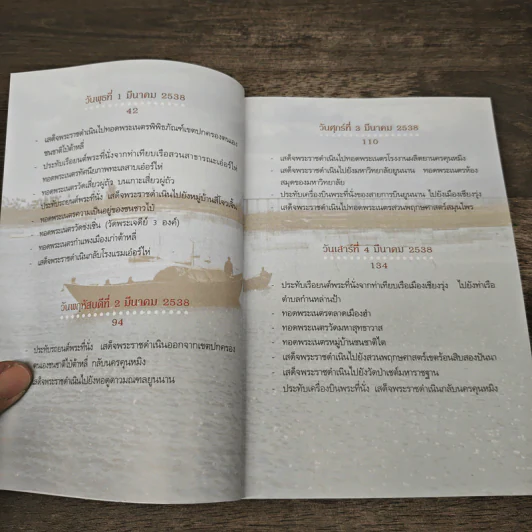 วันพุธที่ 1 มีนาคม 2538
42
- เสด็จพระราชดำเนินไปทอดพระเนตรพิพิธภัณฑ์เขตปกครองตนเอง
ชนชาติไป๋ต้าหลี่
- ประทับเรือยนต์พระที่นั่งจากท่าเทียบเรือสวนสาธารณะเอ๋อร์ไห่
ทอดพระเนตรทัศนียภาพทะเลสาบเอ๋อร์ไห่
- ทอดพระเนตรวัดเสี่ยวผู่ถัว บนเกาะเสี่ยวผู่ถัว
- ประทับรถยนต์พระที่นั่ง เสด็จพระราชดำเนินไปยังหมู่บ้าน
ทอดพระเนตรความเป็นอยู่ของชนชาวไป๋
- ทอดพระเนตรวัดฉงเซิ่น (วัดพระเจดีย์ 3 องค์)
- ทอดพระเนตรกำแพงเมืองเก่าต้าหลี่
- เสด็จพระราชดำเนินกลับโรงแรมเอ๋อร์ไห่
วันพฤหัสบดีที่ 2 มีนาคม 2538
94
- ประทับรถยนต์พระที่นั่ง เสด็จพระราชดำเนินออกจากเขตปกครอง
ตนเองชนชาติไป๋ต้าหลี่ กลับนครคุนหมิง
เสด็จพระราชดำเนินไปยังหอดูดาวมณฑลยูนนาน
วันศุกร์ที่ 3 มีนาคม 2538
110
- เสด็จพระราชดำเนินไปทอดพระเนตรโรงงานผลิตยานครคุนหมิง
- เสด็จพระราชดำเนินไปยังมหาวิทยาลัยยูนนาน ทอดพระเนตรห้อง
สมุดของมหาวิทยาลัย
- ประทับเครื่องบินพระที่นั่งของสายการบินยูนนาน ไปยังเมืองเชียงรุ่ง
- เสด็จพระราชดำเนินไปทอดพระเนตรสวนพฤกษศาสตร์สมุนไพร
วันเสาร์ที่ 4 มีนาคม 2538
134
- ประทับเรือยนต์พระที่นั่งจากท่าเทียบเรือเมืองเชียงรุ่ง ไปยังท่าเรือ
ตำบลก่านหล่านป้า
- ทอดพระเนตรตลาดเมืองฮำ
- ทอดพระเนตรวัดมหาสุทธาวาส
- ทอดพระเนตรหมู่บ้านชนชาติไต
- เสด็จพระราชดำเนินไปยังสวนพฤกษศาสตร์เขตร้อนสิบสองปันนา
- เสด็จพระราชดำเนินไปยังวัดป่าเชต์มหาราชฐาน
- ประทับเครื่องบินพระที่นั่ง เสด็จพระราชดำเนินกลับนครคุนหมิง